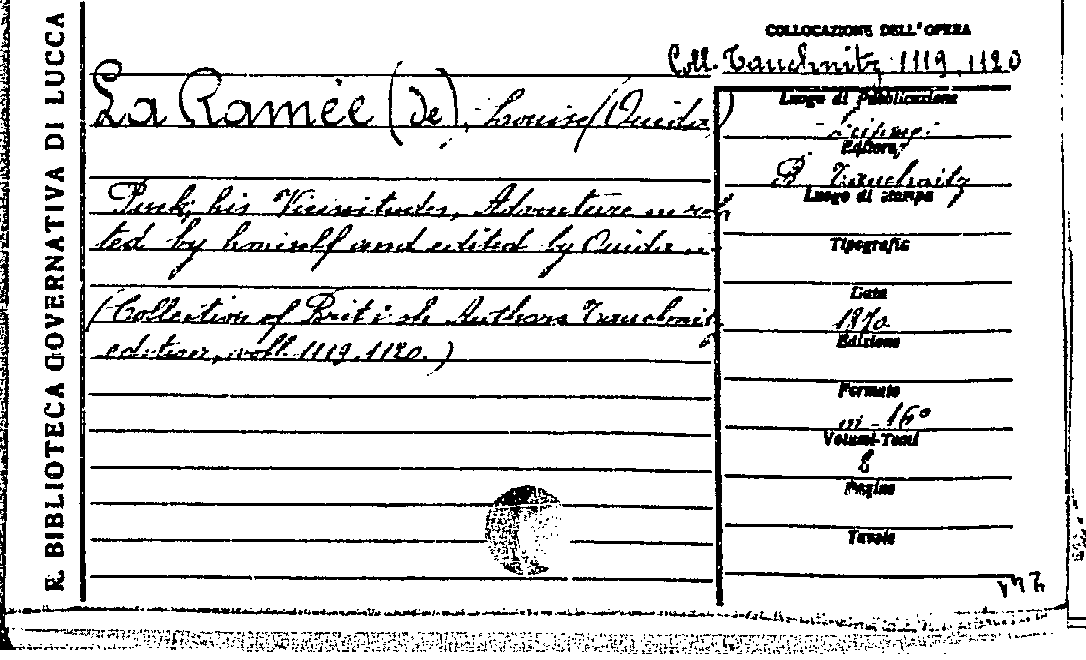 R. BIBLIOTECA GOVERNATIVA DI LUCCA
COLLOCAZIONE DELL'OPERA
Coll. Tauchnitz 1119, 1120
La Ramée (de), Louise (Ouida)
Puck, his Vicinitudes, Adventure
ted by himself and edited by Ouida
(Collection of British Authors Tauchnitz
edition, voll. 1119. 1120.)
Luogo di Pubblicazione
Editore
B. Tauchnitz
Luogo di stampa
Tipografia
Data
1870
Edizione
Formato
in-16°
Volumi-Tomi
2
Pagine
Tavole